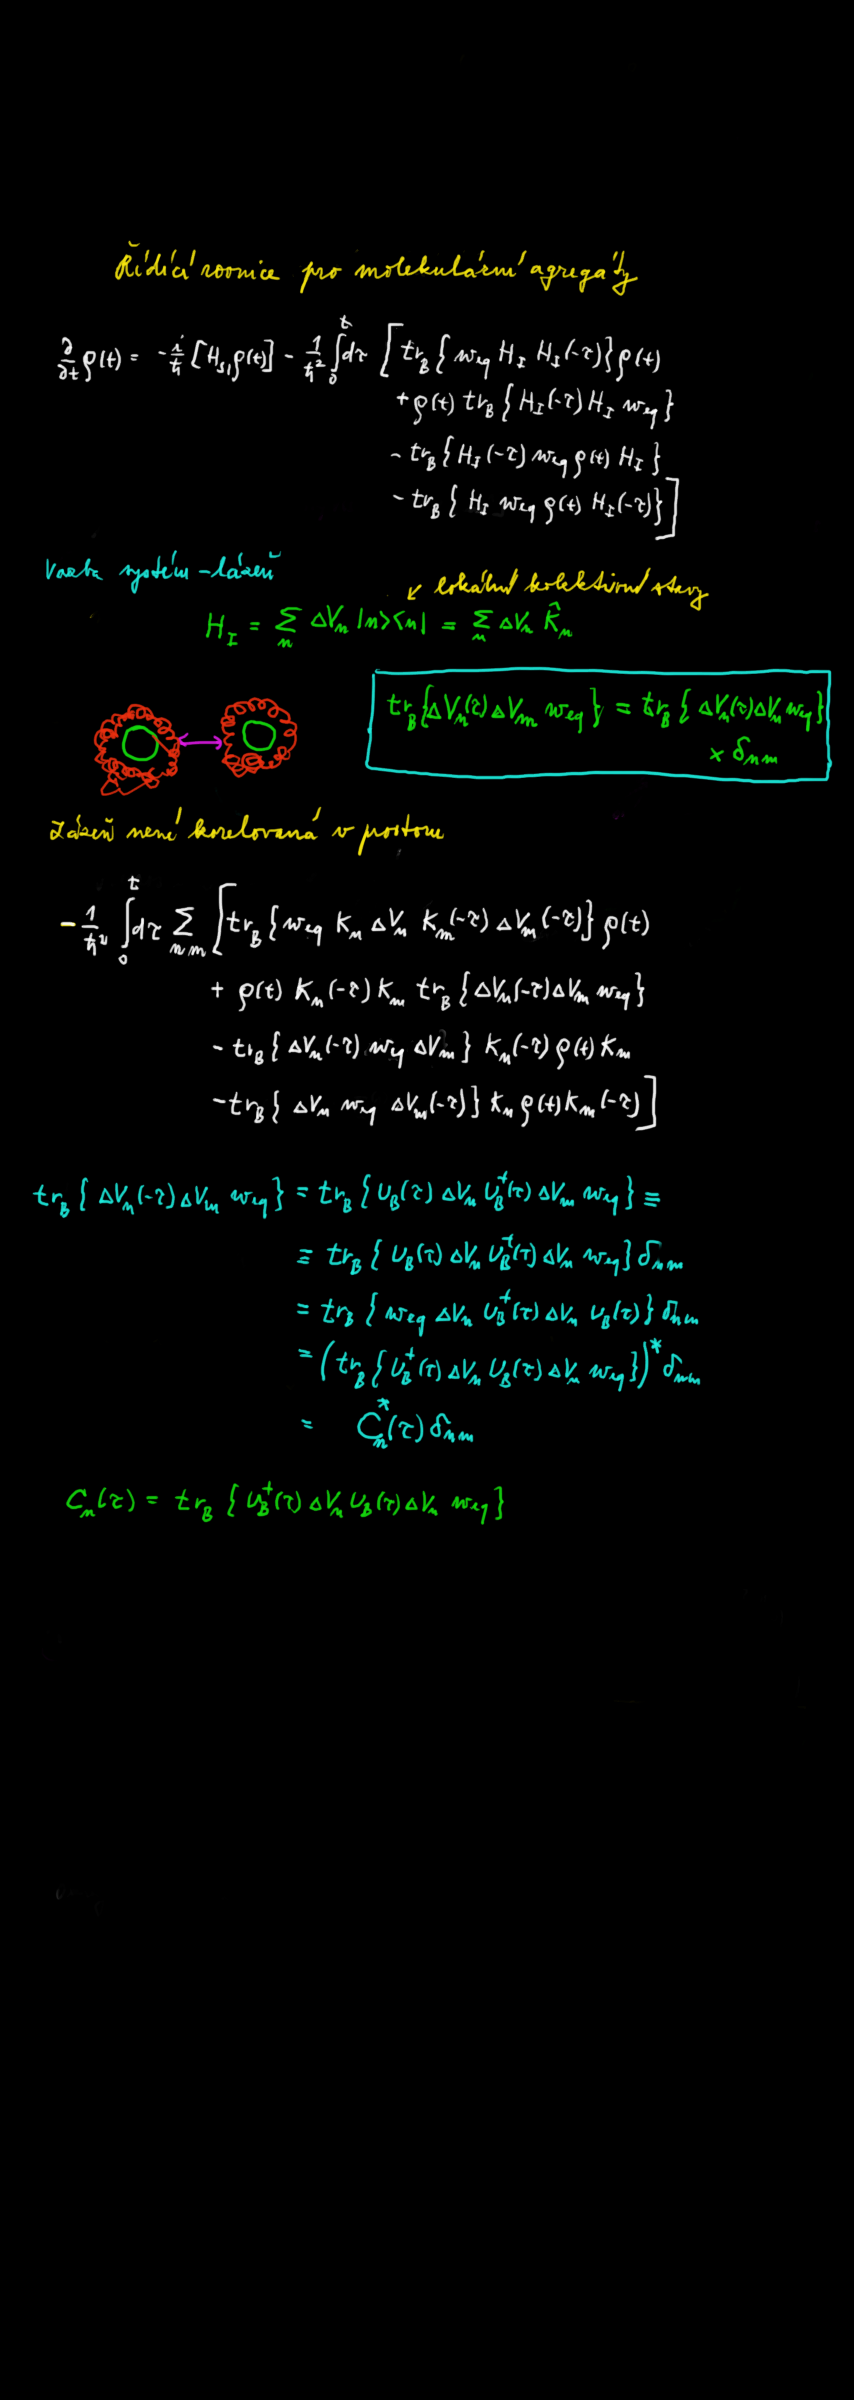 Řídící rovnice pro molekulární agregáty
∂/∂t ρ(t) = -i/ħ [H_S, ρ(t)] - 1/ħ² ∫₀ᵗ dτ [ tr_B { w_eq H_I H_I(-τ)} ρ(t)
+ ρ(t) tr_B { H_I(-τ) H_I w_eq }
- tr_B { H_I(-τ) w_eq ρ(t) H_I }
- tr_B { H_I w_eq ρ(t) H_I(-τ)} ]
Vazba systém - lázeň
↙ lokální kolektivní stavy
H_I = Σ_n ΔV_n |n><n| = Σ_n ΔV_n K̂_n
tr_B{ΔV_n(τ) ΔV_m w_eq} = tr_B { ΔV_n(τ) ΔV_n w_eq}
× δ_nm
Lázeň není korelovaná v postoru
- 1/ħ² ∫₀ᵗ dτ Σ_nm [ tr_B { w_eq K_n ΔV_n K_m(-τ) ΔV_m(-τ)} ρ(t)
+ ρ(t) K_n(-τ) K_m tr_B { ΔV_n(-τ) ΔV_m w_eq }
- tr_B { ΔV_n(-τ) w_eq ΔV_m } K_n(-τ) ρ(t) K_m
- tr_B { ΔV_n w_eq ΔV_m(-τ)} K_n ρ(t) K_m(-τ) ]
tr_B { ΔV_n(-τ) ΔV_m w_eq } = tr_B { U_B(τ) ΔV_n U_B⁺(τ) ΔV_m w_eq } ≡
≡ tr_B { U_B(τ) ΔV_n U_B⁺(τ) ΔV_n w_eq } δ_nm
= tr_B { w_eq ΔV_n U_B⁺(τ) ΔV_n U_B(τ) } δ_nm
= ( tr_B { U_B⁺(τ) ΔV_n U_B(τ) ΔV_n w_eq } )* δ_nm
= C_n*(τ) δ_nm
C_n(τ) = tr_B { U_B⁺(τ) ΔV_n U_B(τ) ΔV_n w_eq }